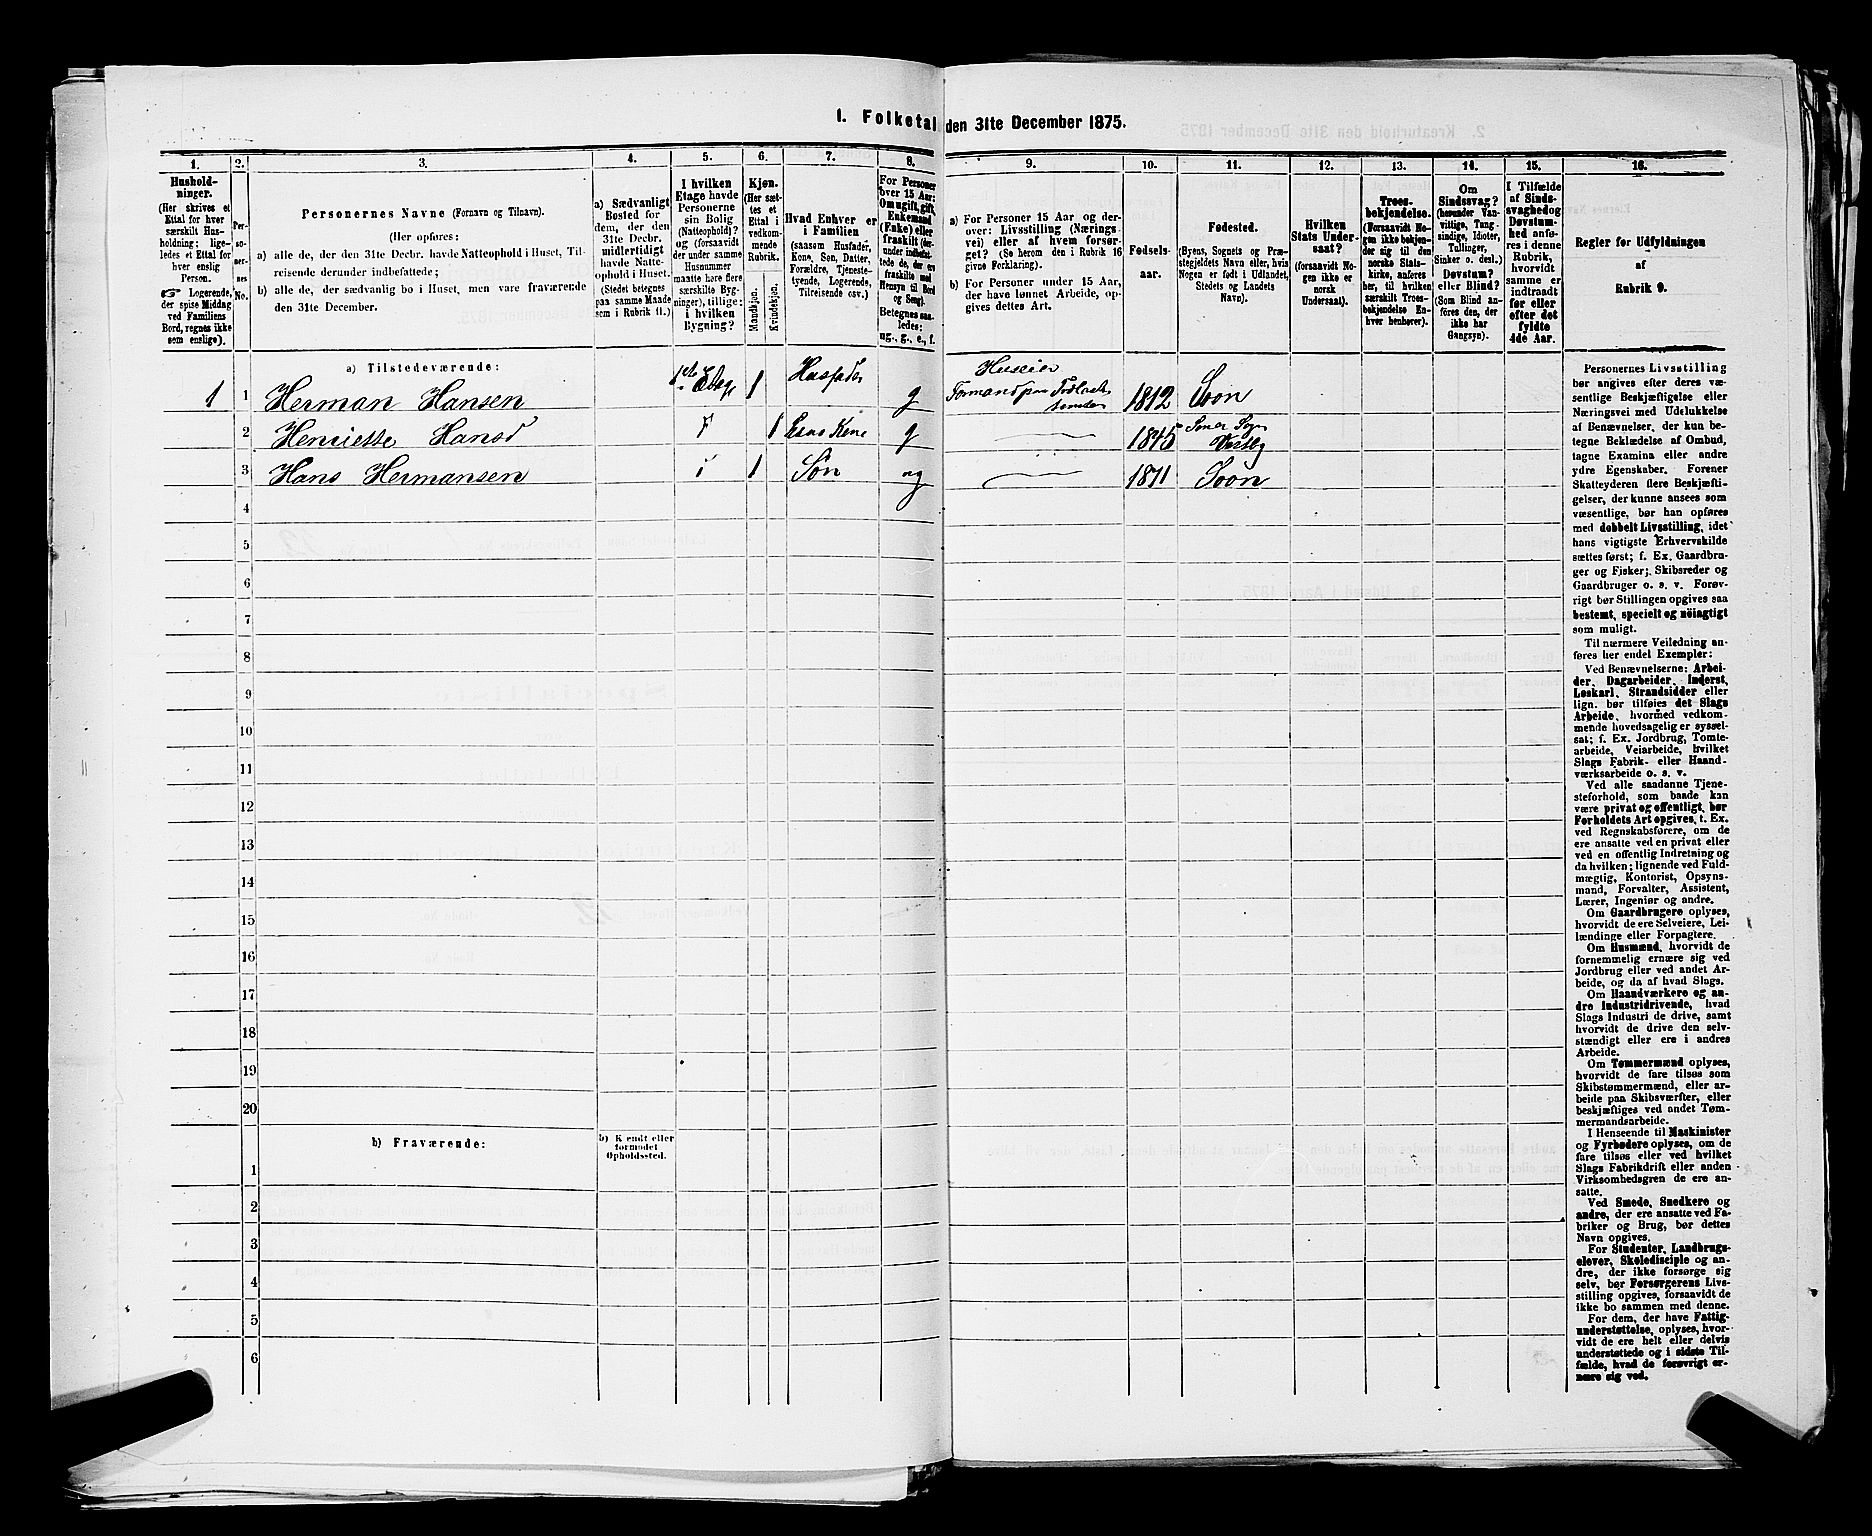 1. Folketal den 31te December 1875.
1.
2.
3.
4.
5.
6.
7.
8.
9.
10.
11.
12.
13.
14.
15.
16.
Hushold-
ninger.
(Her skrives et
Ettal for hver
særskilt Hus-
holdning; lige-
ledes et Ettal
for hver
enslig
Person.
☞ Logerende,
der spise Middag
ved Familiens
Bord, regnes ikke
som enslige).
Per-
so-
ner-
nes
No.
Personernes Navne (Fornavn og Tilnavn).
(Her opføres:
a) alle de, der den 31te Decbr. havde Natteophold i Huset, Til-
reisende derunder indbefattede;
b) alle de, der sædvanlig bo i Huset, men vare fraværende
den 31te December.
a) Sædvanligt
Bosted for
dem, der den
31te Decbr.
midlertidigt
havde Natte-
ophold i Huset.
(Stedet betegnes
paa samme Maade
som i Rubrik 11.)
I hvilken
Etage havde
Personerne
sin Bolig
(Natteophold)?
og (forsaavidt
der under samme
Husnummer
maatte høre flere
særskilte Byg-
ninger), tillige:
i hvilken
Bygning?
Kjøn.
(Her sæt-
tes et
Ettal i
vedkom-
mende
Rubrik.
Mandkjøn.
Kvindekjøn.
Hvad Enhver er
i Familien
(saasom Husfader,
Kone, Søn, Datter,
Forældre, Tjeneste-
tyende, Logerende,
Tilreisende osv.)
For Personer
over 15 Aar:
Om ugift, gift,
Enkemand
(Enke) eller
fraskilt (der-
under indbefat-
tede de, der ere
fraskilte med
Hensyn til Bord
og Seng).
Betegnes saa-
ledes:
ug., g., e., f.
a) For Personer 15 Aar og der-
over: Livsstilling (Nærings-
vei) eller af hvem forsør-
get? (Se herom den i Rubrik 16
givne Forklaring).
b) For Personer under 15 Aar,
der have lønnet Arbeide, op-
gives dettes Art.
Fødsels-
aar.
Fødested.
(Byens, Sognets og Præ-
stegjeldets Navn eller, hvis
Nogen er født i Udlandet,
Stedets og Landets
Navn).
Hvilken
Stats Under-
saat?
(forsaavidt No-
gen ikke er
norsk
Undersaat).
Troes-
bekjendelse.
(Forsaavidt No-
gen ikke bekjen-
der sig til den
norske Stats-
kirke, anføres
her, til hvilken
særskilt Troes-
bekjendelse En-
hver henhører).
Om
Sindssvag?
(herunder Van-
vittige, Tung-
sindige, Idioter,
Tullinger,
Sinker o. desl.)
Døvstum?
eller Blind?
(Som Blind an-
føres den, der
ikke har
Gangsyn).
I Tilfælde
af Sinds-
svaghed og
Døvstum-
hed anfø-
res i denne
Rubrik,
hvorvidt
samme er
indtraadt
før eller
efter det
fyldte
4de Aar.
Regler for Udfyldningen
af
Rubrik 9.
a) Tilstedeværende:
1 1 Herman Hansen 1ste Etage 1 Husfader g Huseier Formand paa 1812 Soon
2 Henriette Hansd 1 Kone g 1845 Sogn Vestby
3 Hans Hermansen 1 Søn ug 1871 Soon
4
5
6
7
8
9
10
11
12
13
14
15
16
17
18
19
20
b) Fraværende:
b) Kjendt eller
formodet
Opholdssted.
1
2
3
4
5
6
Personernes Livsstilling
bør angives efter deres væ-
sentlige Beskjæftigelse eller
Næringsvei med Udelukkelse
af Benævnelser, der kun be-
tegne Beklædelse af Ombud,
tagne Examina eller andre
ydre Egenskaber. Forener
Skatteyderen flere Beskjæfti-
gelser, der kunne ansees som
væsentlige, bør han opføres
med dobbelt Livsstilling, idet
hans vigtigste Erhvervskilde
sættes først; f. Ex. Gaardbru-
ger og Fisker; Skibsreder og
Gaardbruger o. s. v. Forøv-
rigt bør Stillingen opgives saa
bestemt, specielt og nöiagtigt
som muligt.
Til nærmere Veiledning an-
føres her endel Exempler:
Ved Benævnelserne: Arbei-
der, Dagarbeider, Inderst,
Løskarl, Strandsidder eller
lign. bør tilføies det Slags
Arbeide, hvormed vedkom-
mende hovedsagelig er syssel-
sat; f. Ex. Jordbrug, Tomte-
arbeide, Veiarbeide, hvilket
Slags Fabrik- eller Haand-
værksarbeide o. s. v.
Ved alle saadanne Tjene-
steforhold, som baade kan
være privat og offentligt, bør
Forholdets Art opgives, t. Ex.
ved Regnskabsførere, om de
ere ansatte ved en privat eller
ved en offentlig Indretning og
da hvilken; lignende ved Fuld-
mægtig, Kontorist, Opsyns-
mand, Forvalter, Assistent,
Lærer, Ingeniør og andre.
Om Gaardbrugere oplyses,
hvorvidt de ere Selveiere, Lei-
lændinge eller Forpagtere.
Om Husmænd, hvorvidt de
fornemmelig ernære sig ved
Jordbrug eller ved andet Ar-
beide, og da af hvad Slags.
Om Haandværkere og an-
dre Industridrivende, hvad
Slags Industri de drive, samt
hvorvidt de drive den selv-
stændigt eller ere i andres
Arbeide.
Om Tømmermænd oplyses,
hvorvidt de fare tilsøs som
Skibstømmermænd, eller ar-
beide paa Skibsværfter, eller
beskjæftiges ved andet Tøm-
mermandsarbeide.
I Henseende til Maskinister
og Fyrbødere oplyses, om de
fare tilsøs eller ved hvilket
Slags Fabrikdrift eller anden
Virksomhedsgren de ere an-
satte.
Ved Smede, Snedkere og
andre, der ere ansatte ved Fa-
briker og Brug, bør dettes
Navn opgives.
For Studenter, Landbrugs-
elever, Skoledisciple og an-
dre, der ikke forsørge sig
selv, bør Forsørgerens Livs-
stilling opgives, forsaavidt de
ikke bo sammen med denne.
For dem, der have Fattig-
understøttelse, oplyses, hvor-
vidt de ere helt eller delvis
understøttede og i sidste Til-
fælde, hvad de forøvrigt er-
nære sig ved.